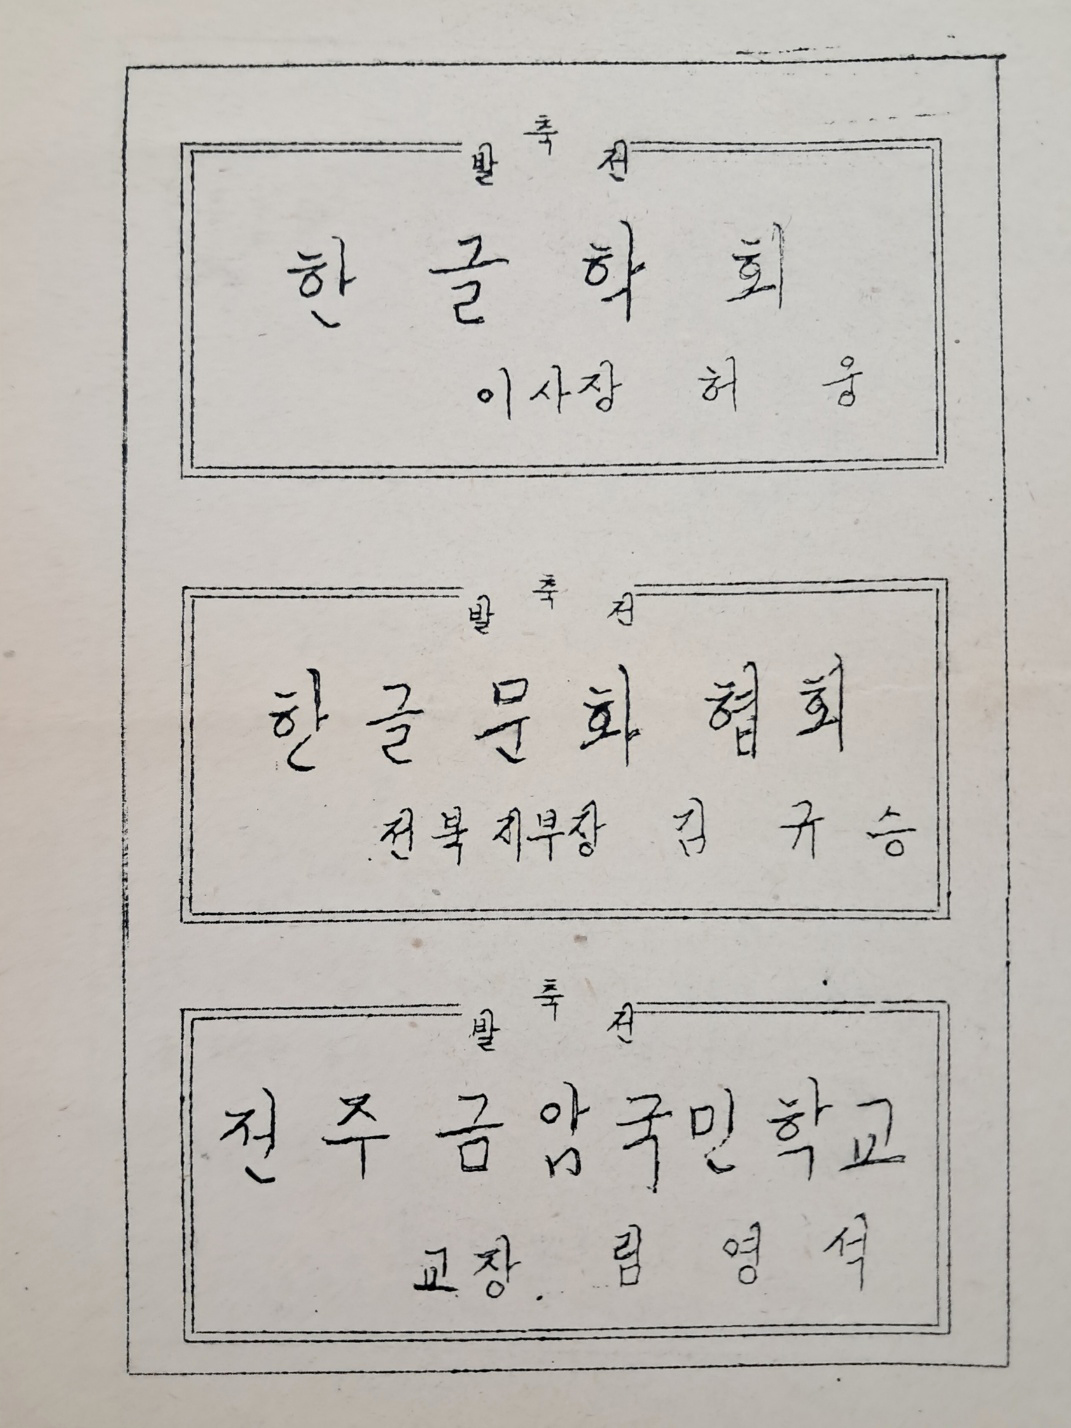 축
발 전
한글학회
이사장 허 웅
축
발 전
한글문화협회
전북 지부장 김 규 승
축
발 전
전주금암국민학교
교장. 림 영 석